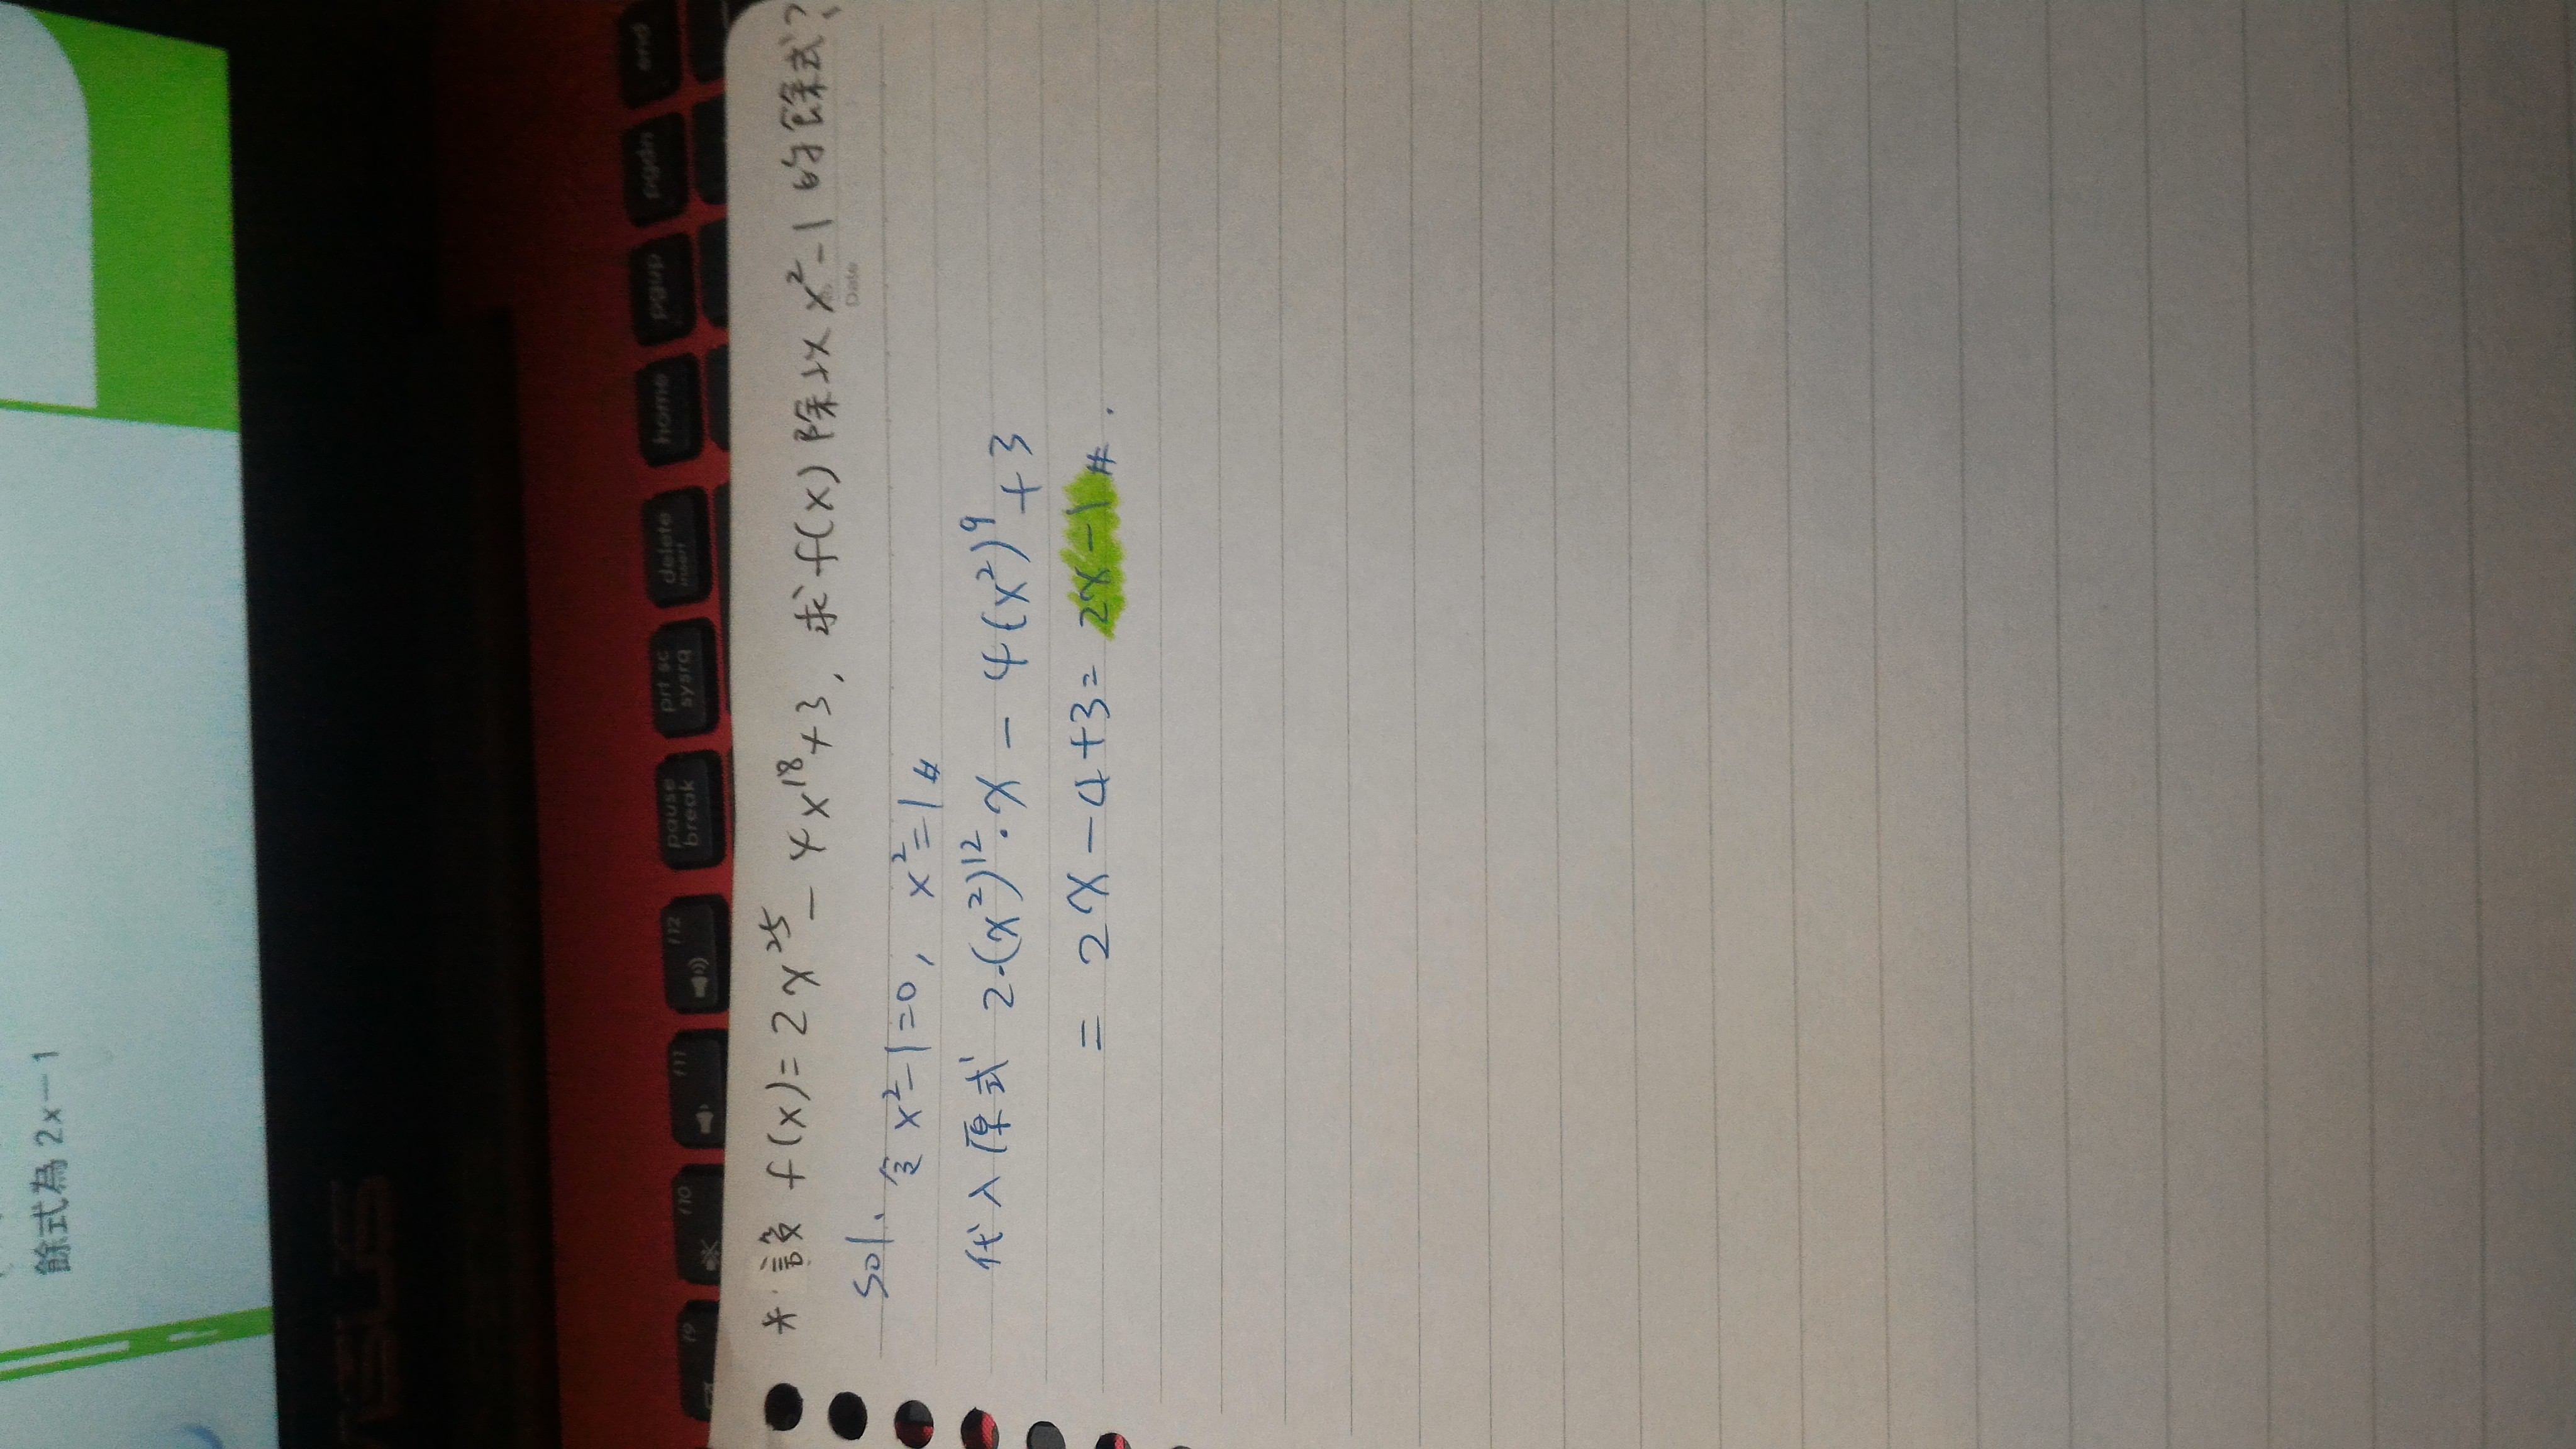 餘式為 2x－1
ASUS
f9
f10
f11
f12
pause break
prt sc sysrq
delete insert
home
pgup
pgdn
end
*. 設 f(x)=2x²⁵-4x¹⁸+3, 求 f(x) 除以 x²-1 的餘式?
Date
Sol. 令 x²-1=0, x²=1#
代入原式 2·(x²)¹²·x-4(x²)⁹+3
= 2x-4+3= 2x-1#.